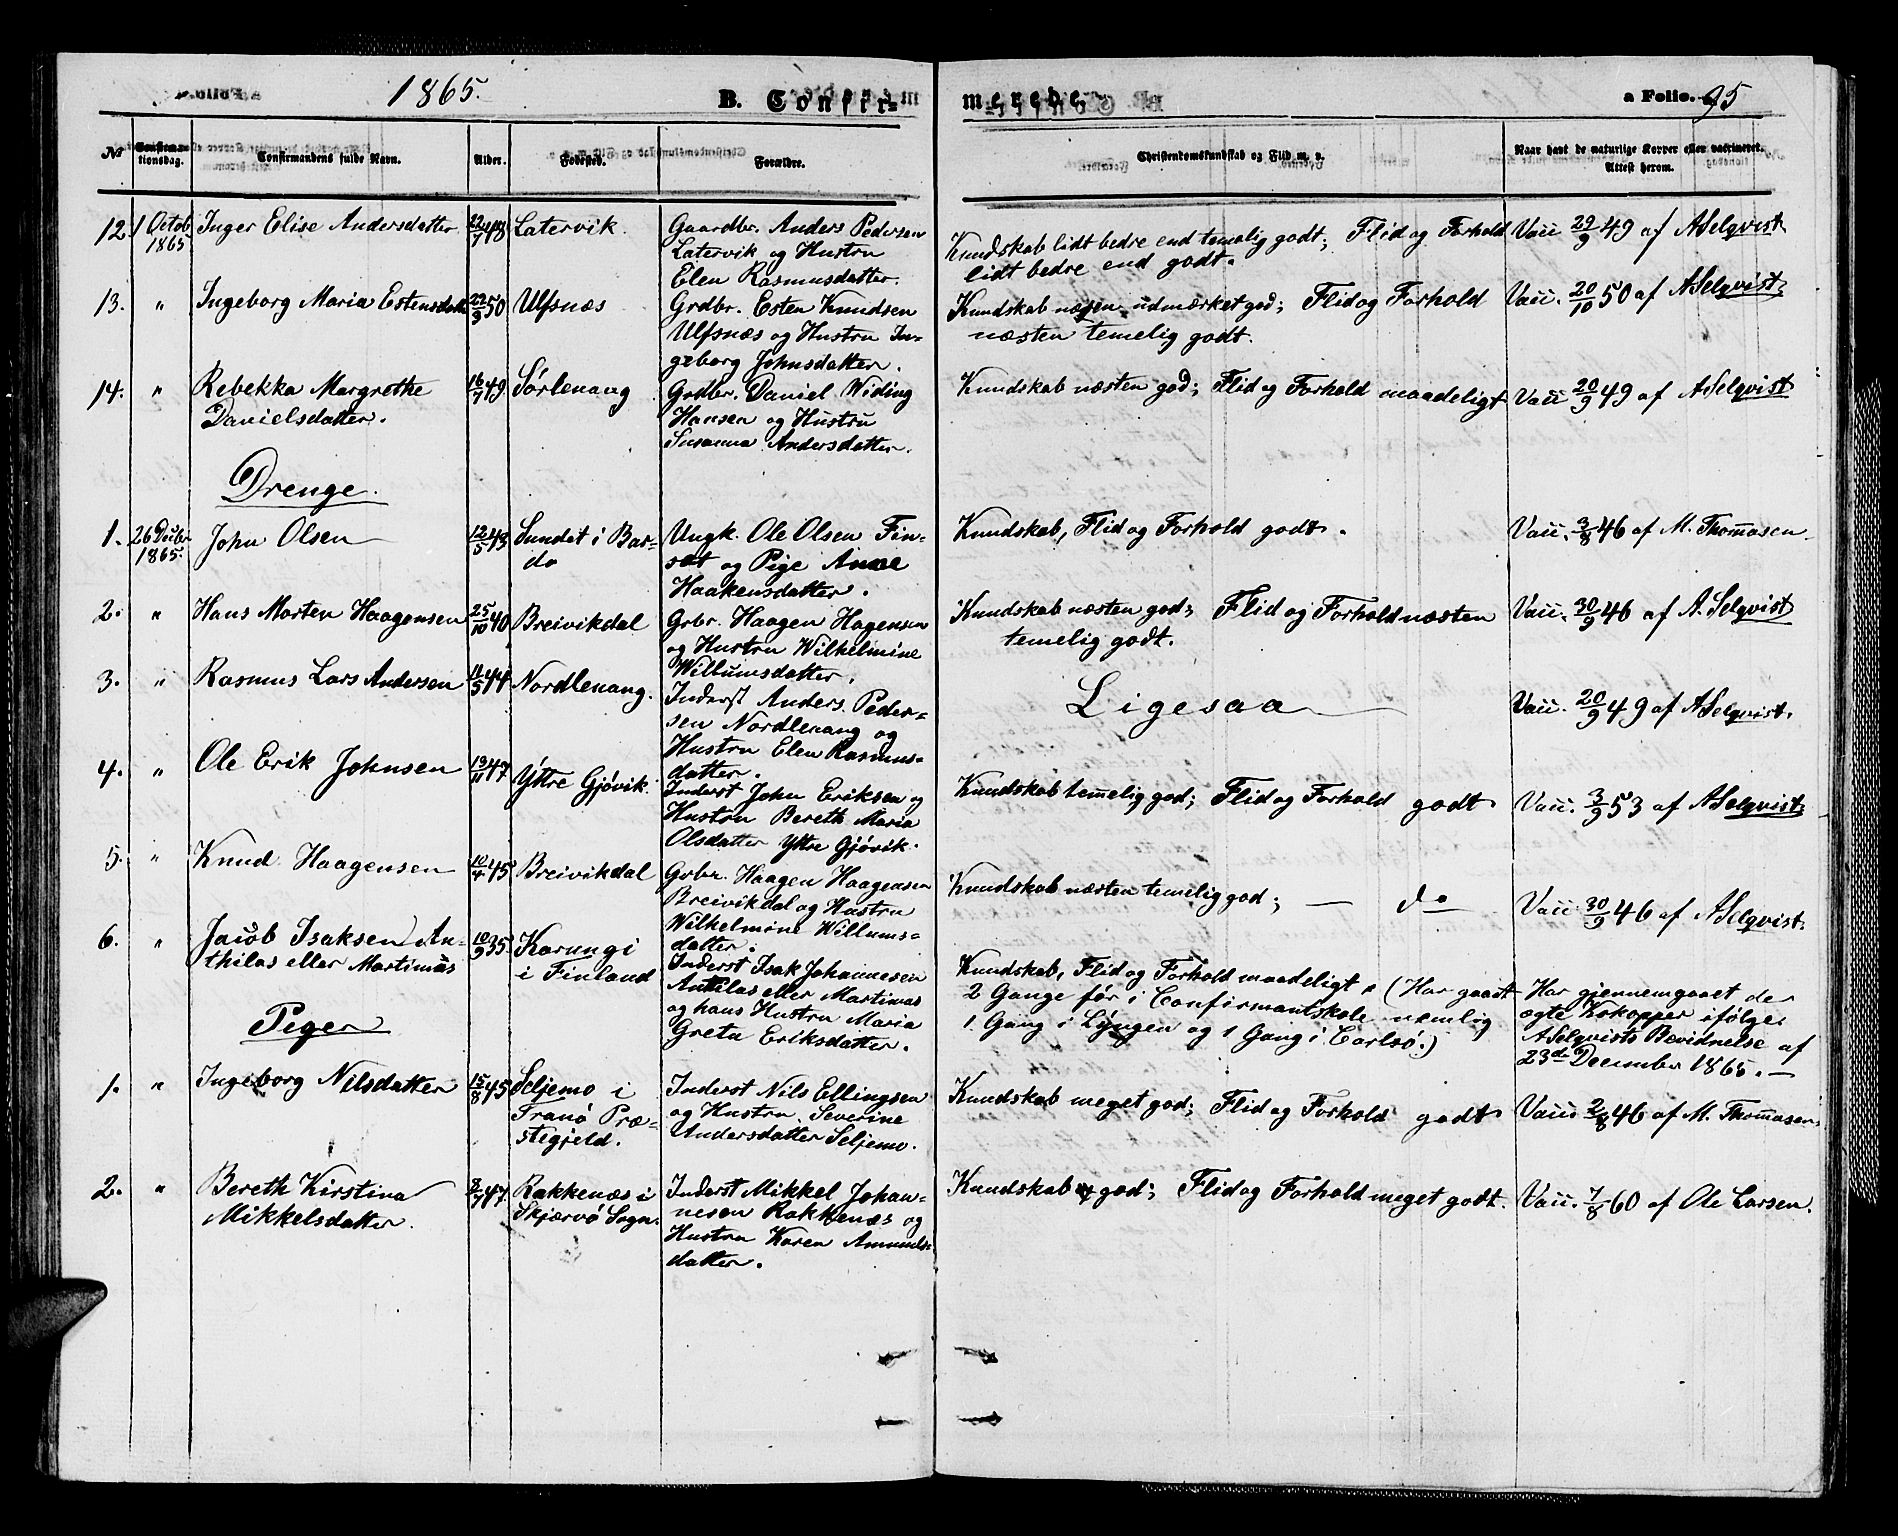 1865. B. Confirmerede. a Folio. 95
No Confirmationsdag. Confirmandens fulde Navn. Alder. Fødested. Forældre. Christendomskundskab og Flid m. v. Naar havt de naturlige Kopper eller vaccineret. Attest herom.
12. 1 Octob. 1865. Inger Elise Andersdatter 22/7 48 Latervik. Gaardbr. Anders Pedersen
Latervik og Hustru
Elen Rasmusdatter.
Kundskab lidt bedre end temelig godt; Flid og Forhold
lidt bedre end godt.
Vacc 29/9 49 af A Selqvist.
13. " Ingeborg Maria Estensdatt 22/9 50 Ulfsnæs Grdbr. Esten Knudsen
Ulfsnæs og Hustru In-
geborg Johnsdatter.
Kundskab næsten udmærket god; Flid og Forhold
næsten temelig godt.
Vacc. 20/10 50 af A Selqvist.
14. " Rebekka Margrethe
Danielsdatter.
16/7 49 Sørlenang Grdbr. Daniel Widing
Hansen og Hustru
Susanna Andersdatter.
Kundskab næsten god; Flid og Forhold maadeligt
Vacc 20/9 49 af A Selqvist
Drenge.
1. 26 Decbr. 1865. John Olsen 12/5 43 Sundet i Bar-
do
Ungk. Ole Olsen Fin-
sæt og Pige Anne
Haakensdatter.
Kundskab, Flid og Forhold godt.
Vacc. 3/8 46 af M. Thomasen.
2. " Hans Morten Haagensen 25/10 40 Breivikdal Gvbr. Haagen Hagensen
og Hustru Wilhelmine
Willumsdatter.
Kundskab næsten god; Flid og Forhold næsten
temelig godt.
Vacc. 30/9 46 af A. Selqvist
3. " Rasmus Lars Andersen 11/5 44 Nordlenang. Inderst Anders Peder-
sen Nordlenang og
Hustru Elen Rasmus-
datter.
Ligesaa
Vacc. 20/9 49 af A Selqvist.
4. " Ole Erik Johnsen 13/11 47 Yttre Gjøvik. Inderst John Eriksen og
Hustru Bereth Maria
Olsdatter Yttre Gjøvik.
Kundskab temelig god; Flid og Forhold godt
Vacc. 3/9 53 af A Selqvist.
5. " Knud Haagensen 10/4 45 Breivikdal Gvbr. Haagen Haagensen
Breivikdal og Hustru
Wilhelmine Willums-
datter.
Kundskab næsten temelig god; — do
Vacc. 30/9 46 af A Selqvist.
6. " Jacob Isaksen An-
thilas eller Martimus
10/9 35. Karungi
i Finland
Inderst Isak Johannesen
Anthilas eller Martimas
og hans Hustru Maria
Greta Eriksdatter.
Kundskab, Flid og Forhold maadeligt. (Har gaaet
2 Gange før i Confirmantskole nemlig
1 Gang i Lyngen og 1 Gang i Carlsø.)
Har gjennemgaaet de
ægte Kokopper ifølge
A Selqvists Bevidnelse af
23de December 1865. —
Piger
1. " Ingeborg Nilsdatter 15/8 45 Seljemo i
Tranø Præ-
stegjeld.
Inderst Nils Ellingsen
og Hustru Severine
Andersdatter Seljemo.
Kundskab meget god; Flid og Forhold godt
Vacc 2/8 46 af M. Thomasen.
2. " Bereth Kirstina
Mikkelsdatter.
8/7 47. Rakkenæs i
Skjærvø Sogn.
Inderst Mikkel Johan-
nesen Rakkenæs og
Hustru Karen Amunds-
datter.
Kundskab god; Flid og Forhold meget godt.
Vacc. 7/8 60 af Ole Larsen.